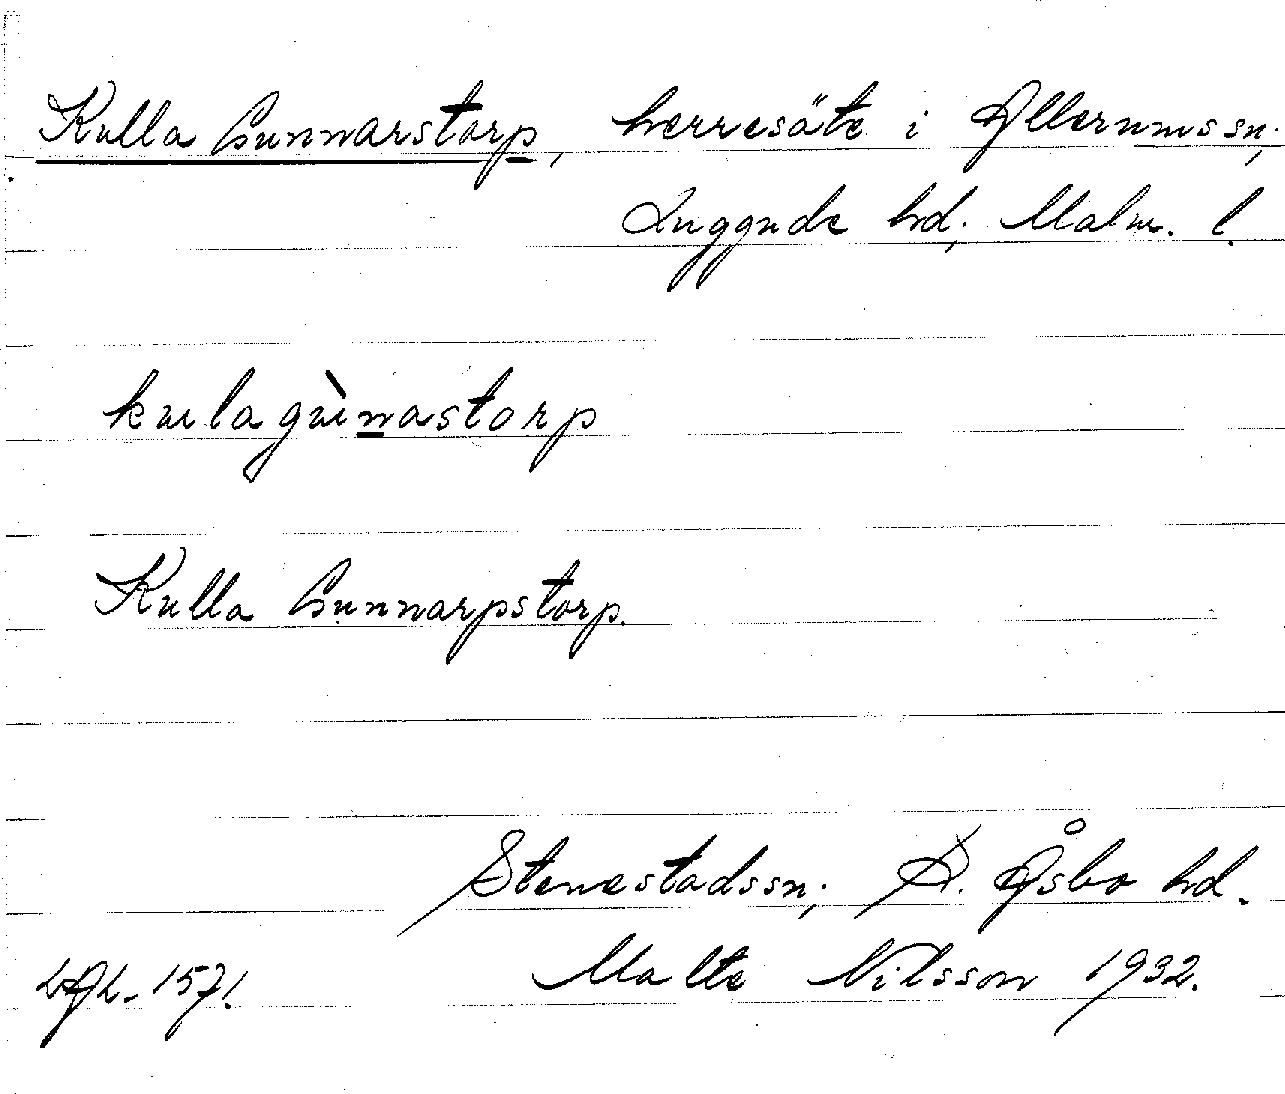 Kulla Gunnarstorp, herresäte i Allerumssn;
Luggude hd; Malm. l.
kulagùnastorp
Kulla Gunnarpstorp.
Stenestadssn; S. Åsbo hd.
Malte Nilsson 1932.
LAL. 1571.